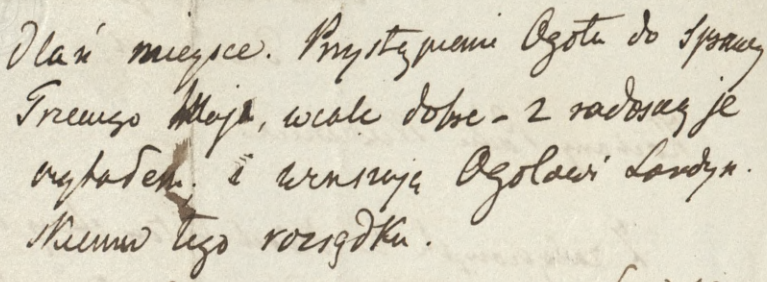 Dlań miejsce. Przystąpienie Ogołu do sprawy
Trzeciego Maja, wcale dobre – z radością je
czytałem. i winszuję Ogołowi Londyn.
skiemu tego rozsądku.